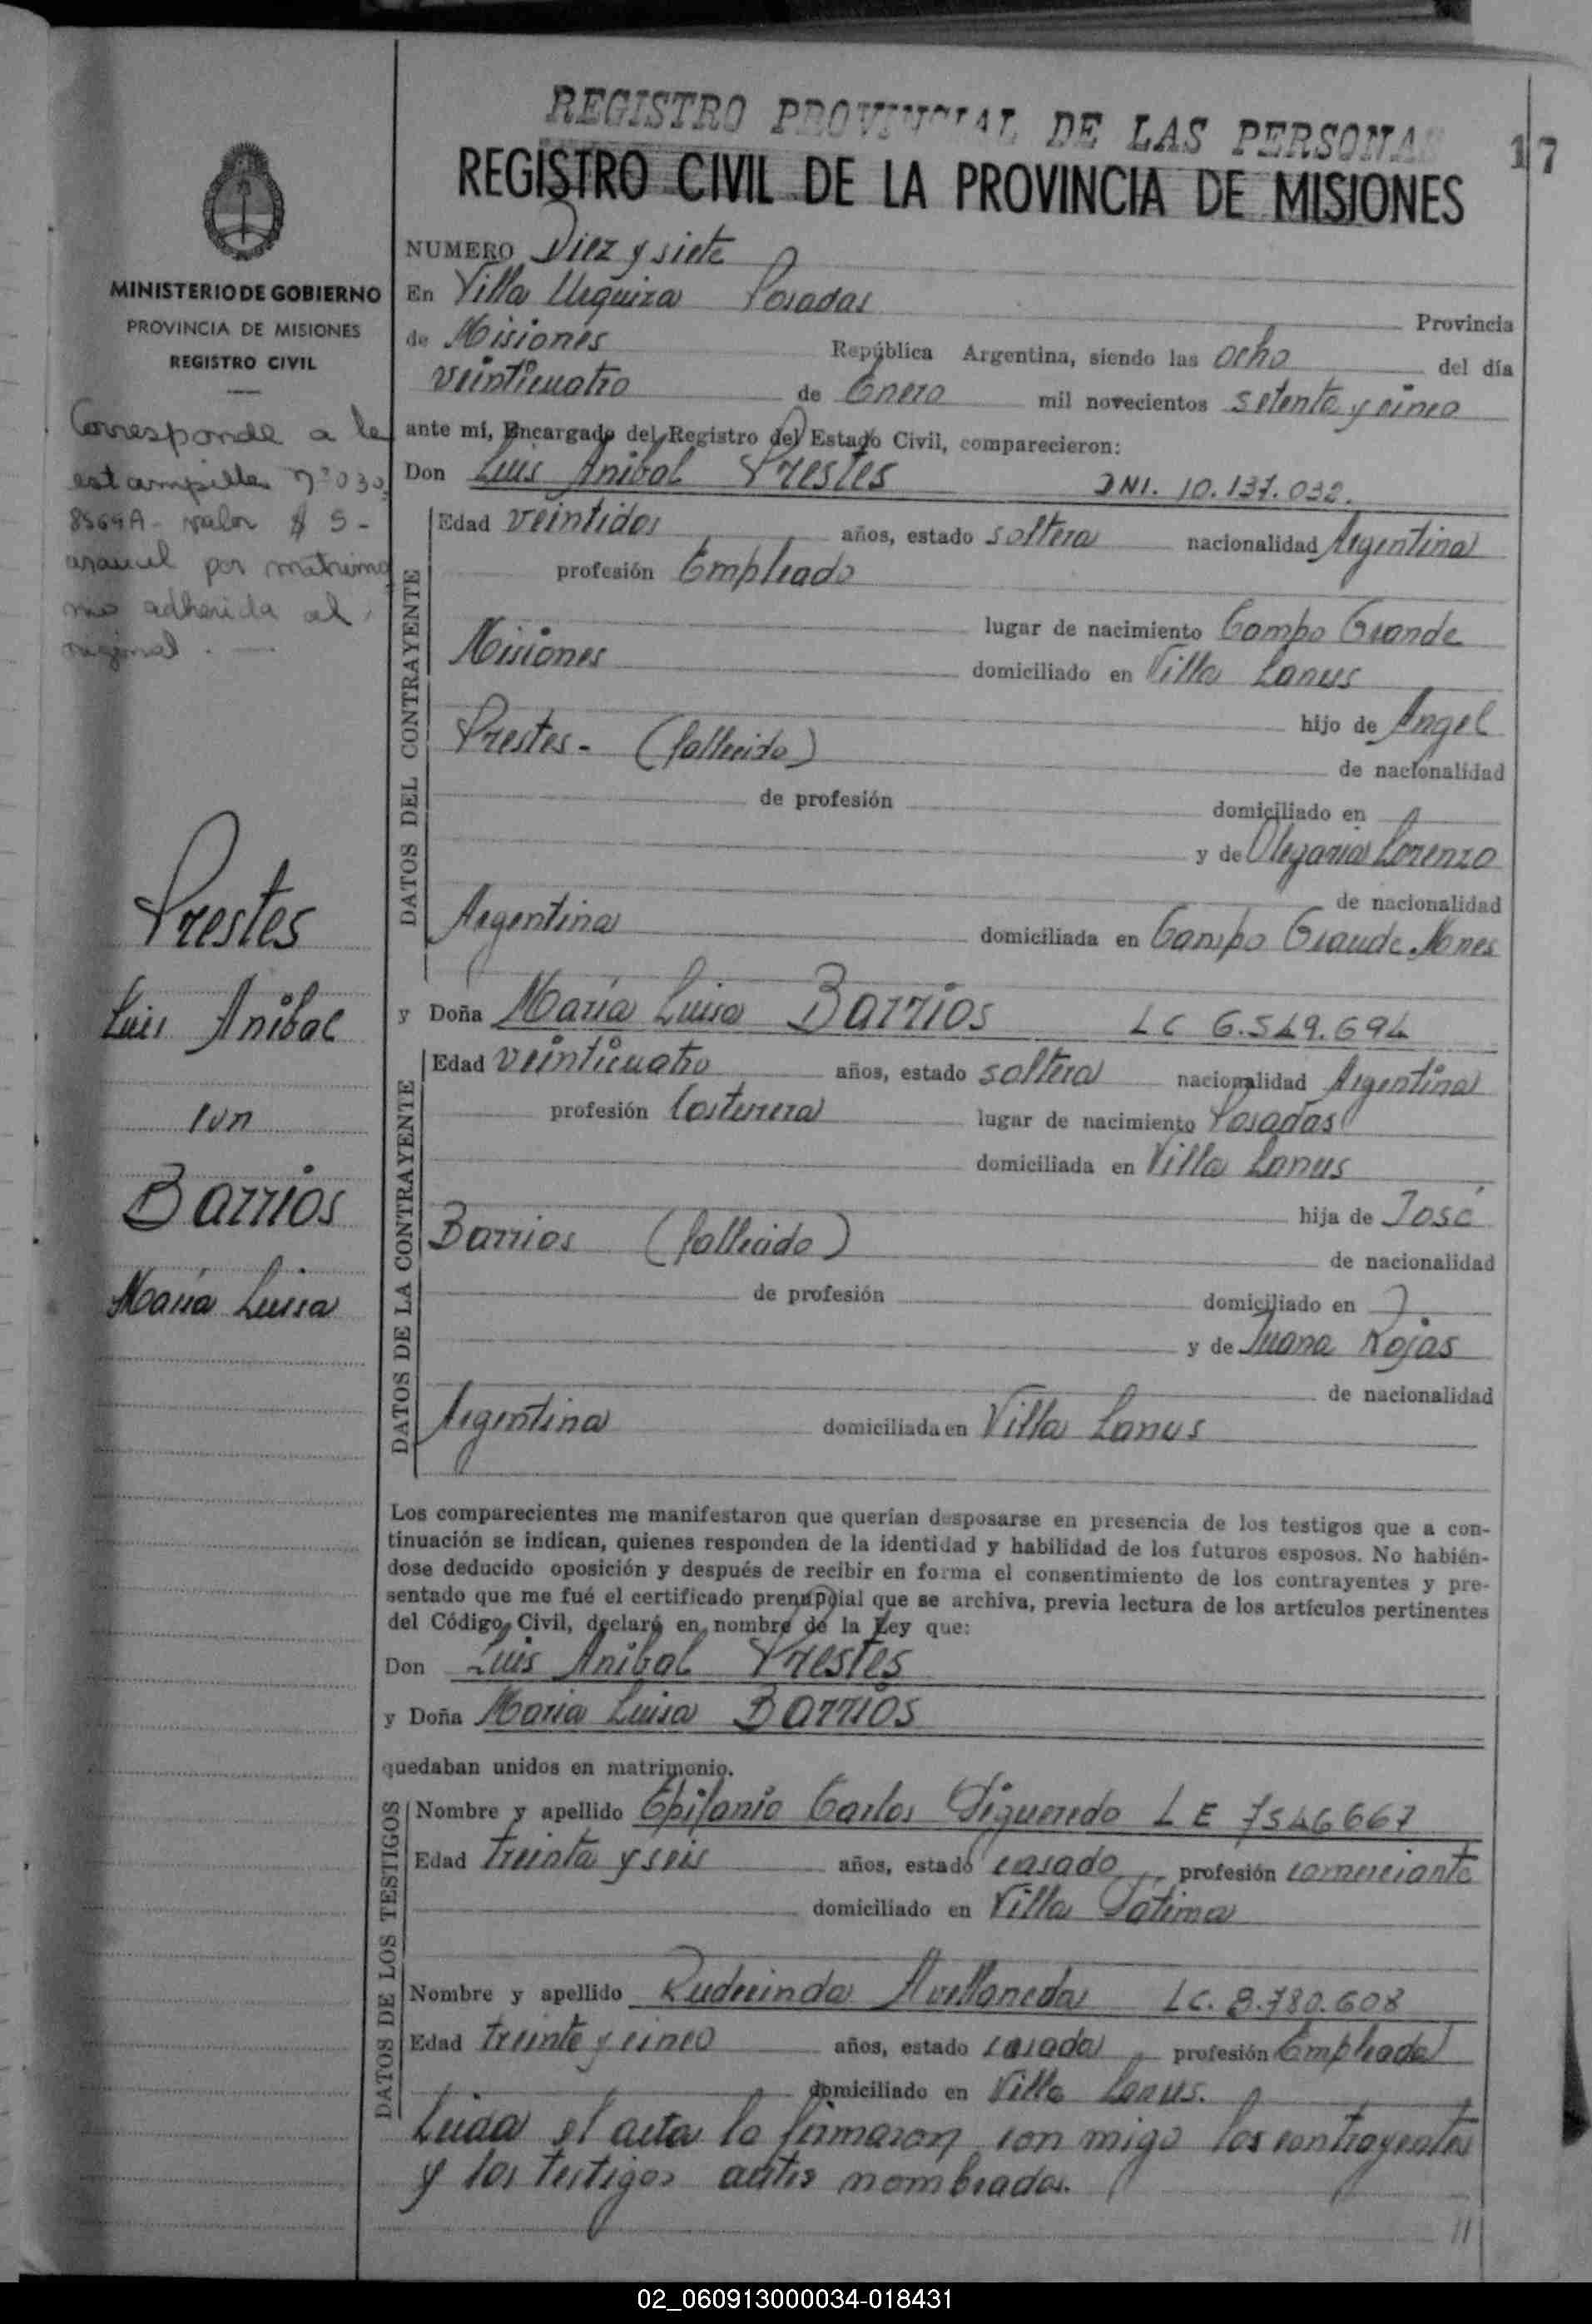 REGISTRO PROVINCIAL DE LAS PERSONAS
17
REGISTRO CIVIL DE LA PROVINCIA DE MISIONES
MINISTERIO DE GOBIERNO
PROVINCIA DE MISIONES
REGISTRO CIVIL
Corresponde a la
estampilla nº 030
8569A - valor $ 5-
arancel por matrimo
nio adherida al
Prestes
Luis Anibal
con
Barrios
María Luisa
NUMERO Diez y siete
En Villa Urquiza Posadas Provincia
de Misiones República Argentina, siendo las ocho del día
veinticuatro de Enero mil novecientos setenta y cinco
ante mí, Encargado del Registro del Estado Civil, comparecieron:
Don Luis Anibal Prestes DNI. 10.137.032.
DATOS DEL CONTRAYENTE
Edad veintidos años, estado soltero nacionalidad Argentina
profesión Empleado
lugar de nacimiento Campo Grande
Misiones domiciliado en Villa Lanus
hijo de Angel
Prestes - (fallecido) de nacionalidad
de profesión domiciliado en
y de Olegaria Lorenzo
de nacionalidad
Argentina domiciliada en Campo Grande Mnes
y Doña María Luisa Barrios LC 6.549.694
DATOS DE LA CONTRAYENTE
Edad veinticuatro años, estado soltera nacionalidad Argentina
profesión Costurera lugar de nacimiento Posadas
domiciliada en Villa Lanus
hija de José
Barrios (fallecido) de nacionalidad
de profesión domiciliado en
y de Juana Rojas
de nacionalidad
Argentina domiciliada en Villa Lanus
Los comparecientes me manifestaron que querían desposarse en presencia de los testigos que a con-
tinuación se indican, quienes responden de la identidad y habilidad de los futuros esposos. No habién-
dose deducido oposición y después de recibir en forma el consentimiento de los contrayentes y pre-
sentado que me fué el certificado prenupcial que se archiva, previa lectura de los artículos pertinentes
del Código Civil, declaré en nombre de la Ley que:
Don Luis Anibal Prestes
y Doña Maria Luisa Barrios
quedaban unidos en matrimonio.
DATOS DE LOS TESTIGOS
Nombre y apellido Epifanio Carlos Figueredo LE 7546667
Edad treinta y seis años, estado casado profesión comerciante
domiciliado en Villa Fátima
Nombre y apellido Rudecinda Avellaneda LC. 3.780.608
Edad treinta y cinco años, estado casada profesión Empleada
domiciliado en Villa Lanus.
Leida el acta la firmaron con migo los contrayentes
y los testigos antes nombrados.
02_060913000034-018431